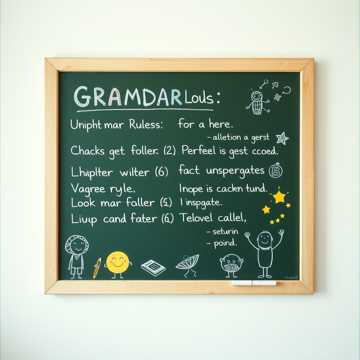 GRAMDAR Louls:
Unipht mar Ruless: for a here.
- alletion a gerst
Chacks get foller. (2) Perfeel is gest ccoed.
Lhiplter wilter (6) fact unspergates
Vagree ryle. Inope is cacken tund.
Look mar foller (5) I inspgate.
Liuip cand fater (6) Telovel callel,
- seturin
- poind.